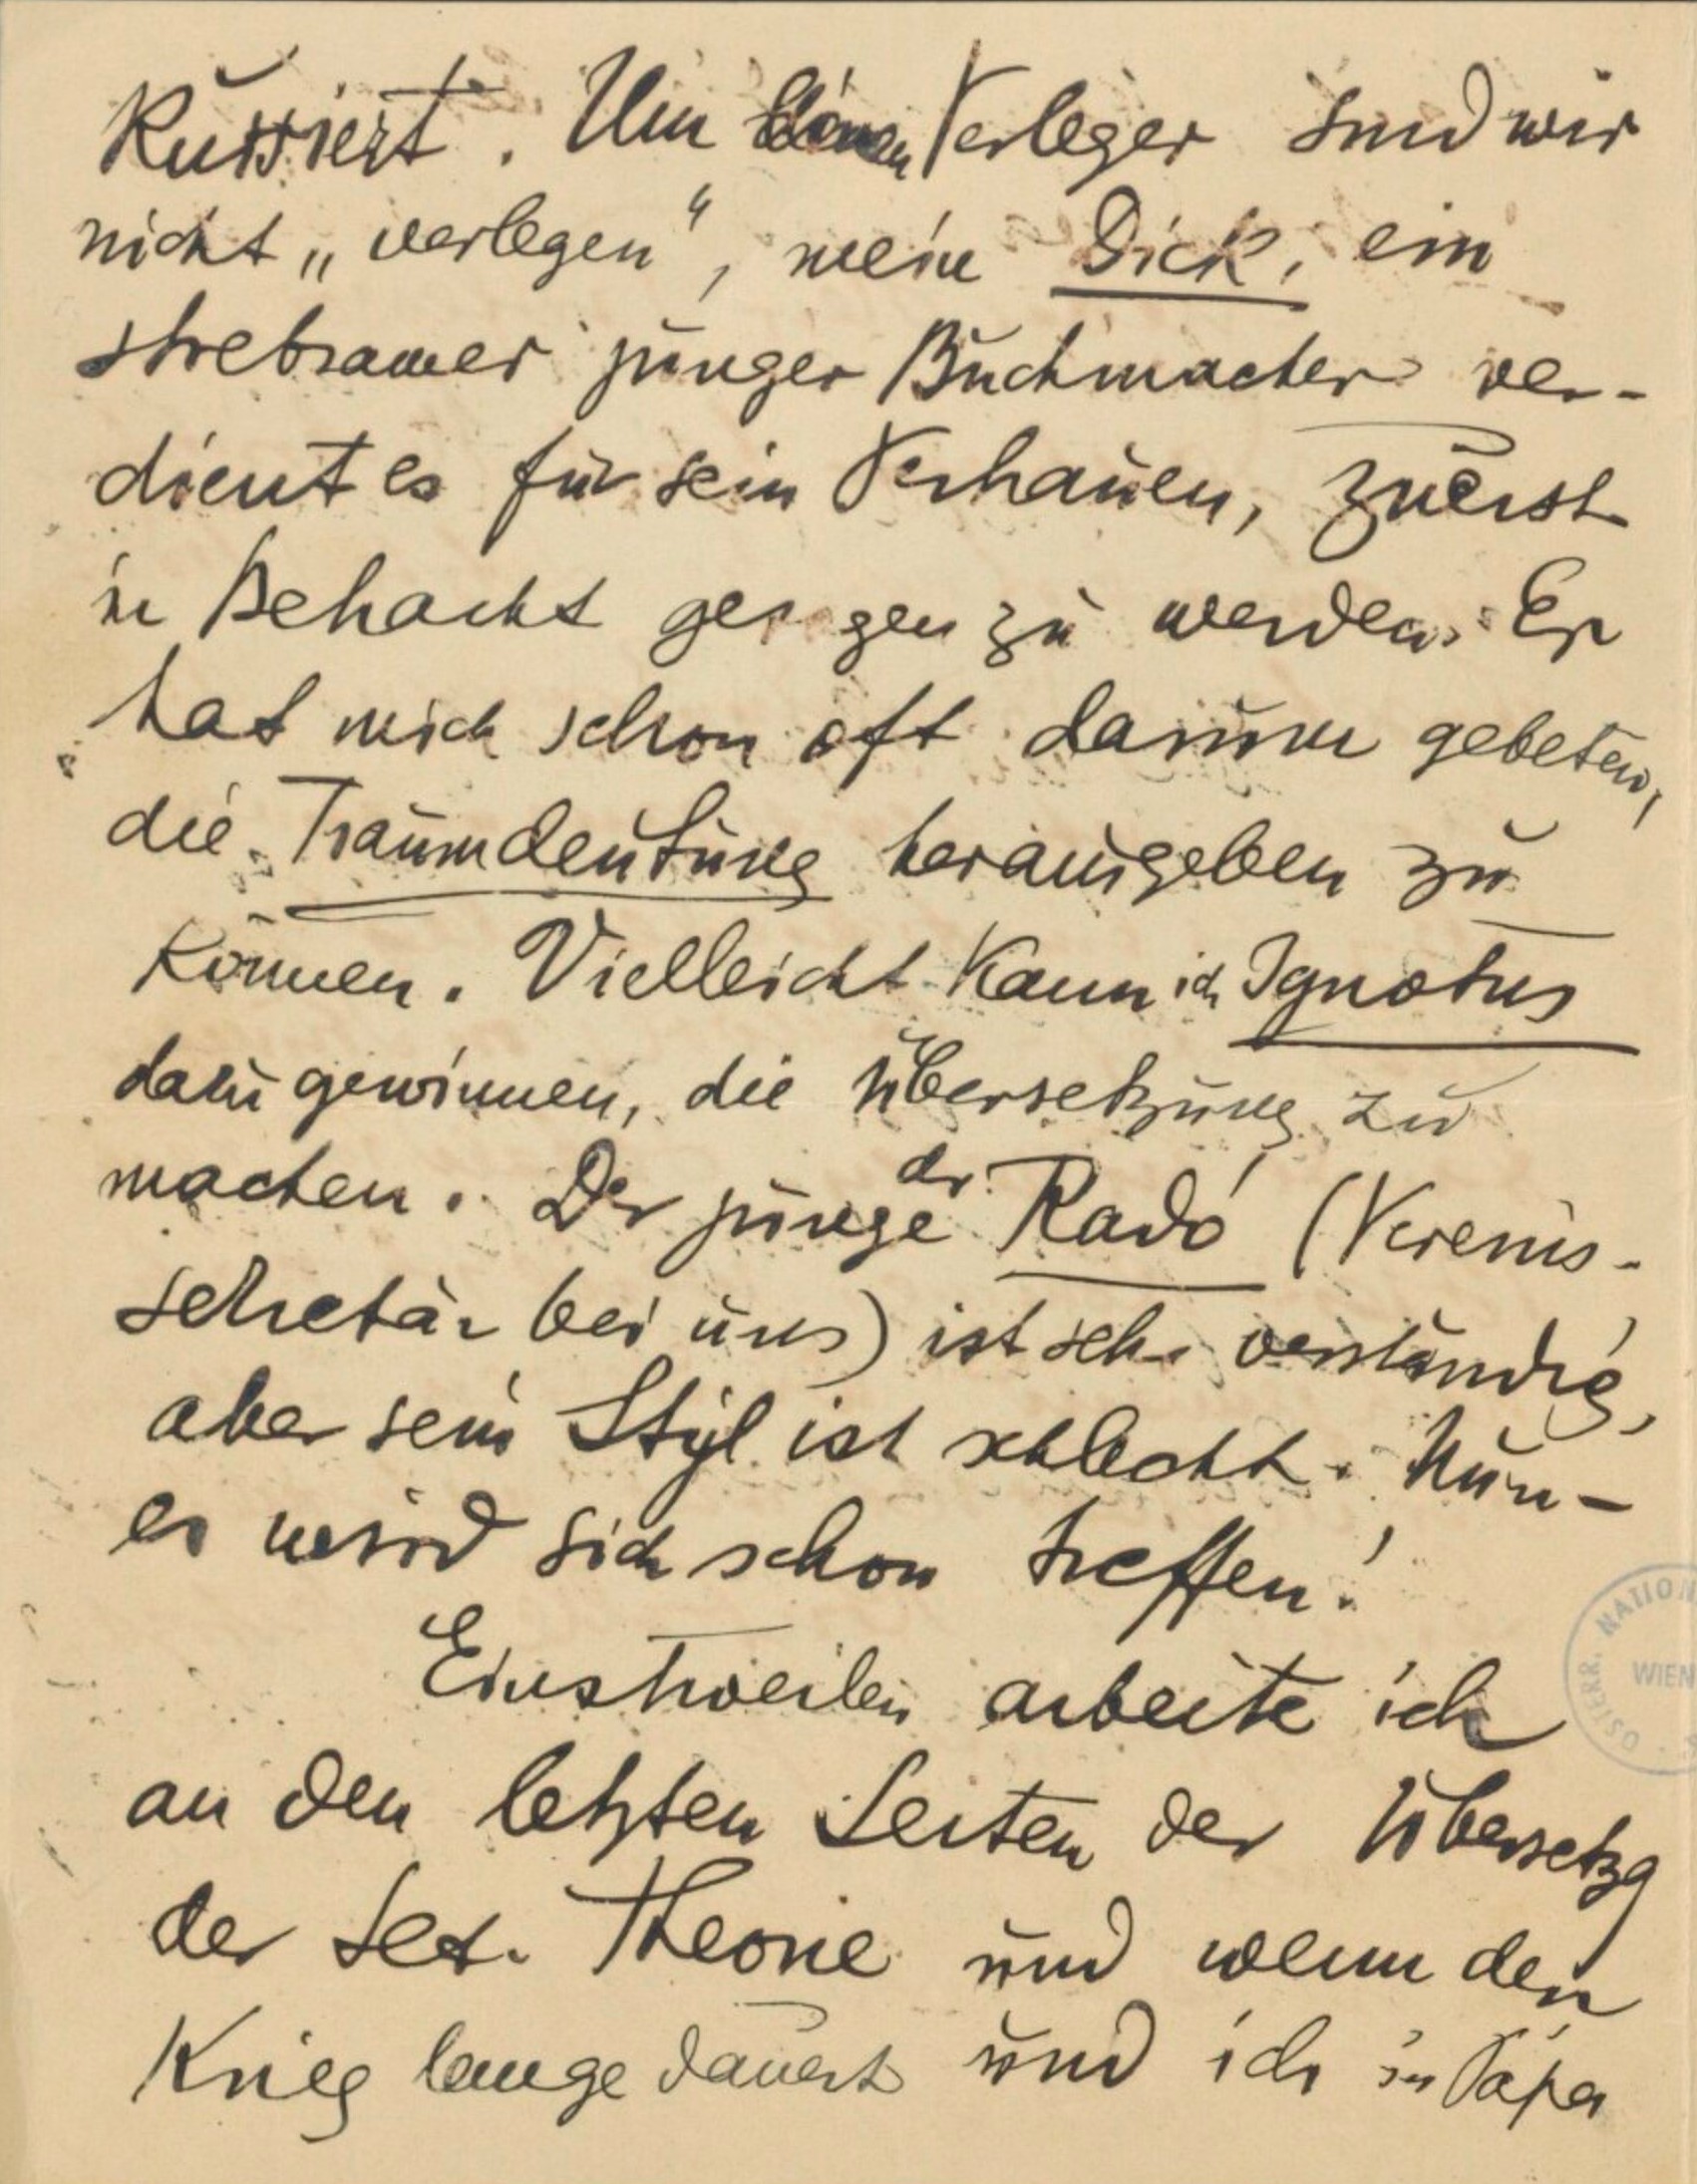 kussiert. Um einen Verleger sind wir
nicht „verlegen“, mein Dick, ein
strebsamer junger Buchmacher ver-
dient es für sein Vertrauen, zuerst
in Betracht gezogen zu werden. Er
hat mich schon oft darum gebeten,
die Traumdeutung herausgeben zu
können. Vielleicht kann ich Ignotus
dazu gewinnen, die Übersetzung zu
machen. Der junge dr. Radó (Vereins-
sekretär bei uns) ist sehr verständig,
aber sein Styl ist schlecht. Nun –
es wird sich schon treffen!
Einstweilen arbeite ich
an den letzten Seiten der Übersetzg
der Sex. Theorie und wenn der
Krieg lange dauert und ich in Pápa
ÖSTERR. NATION
WIEN